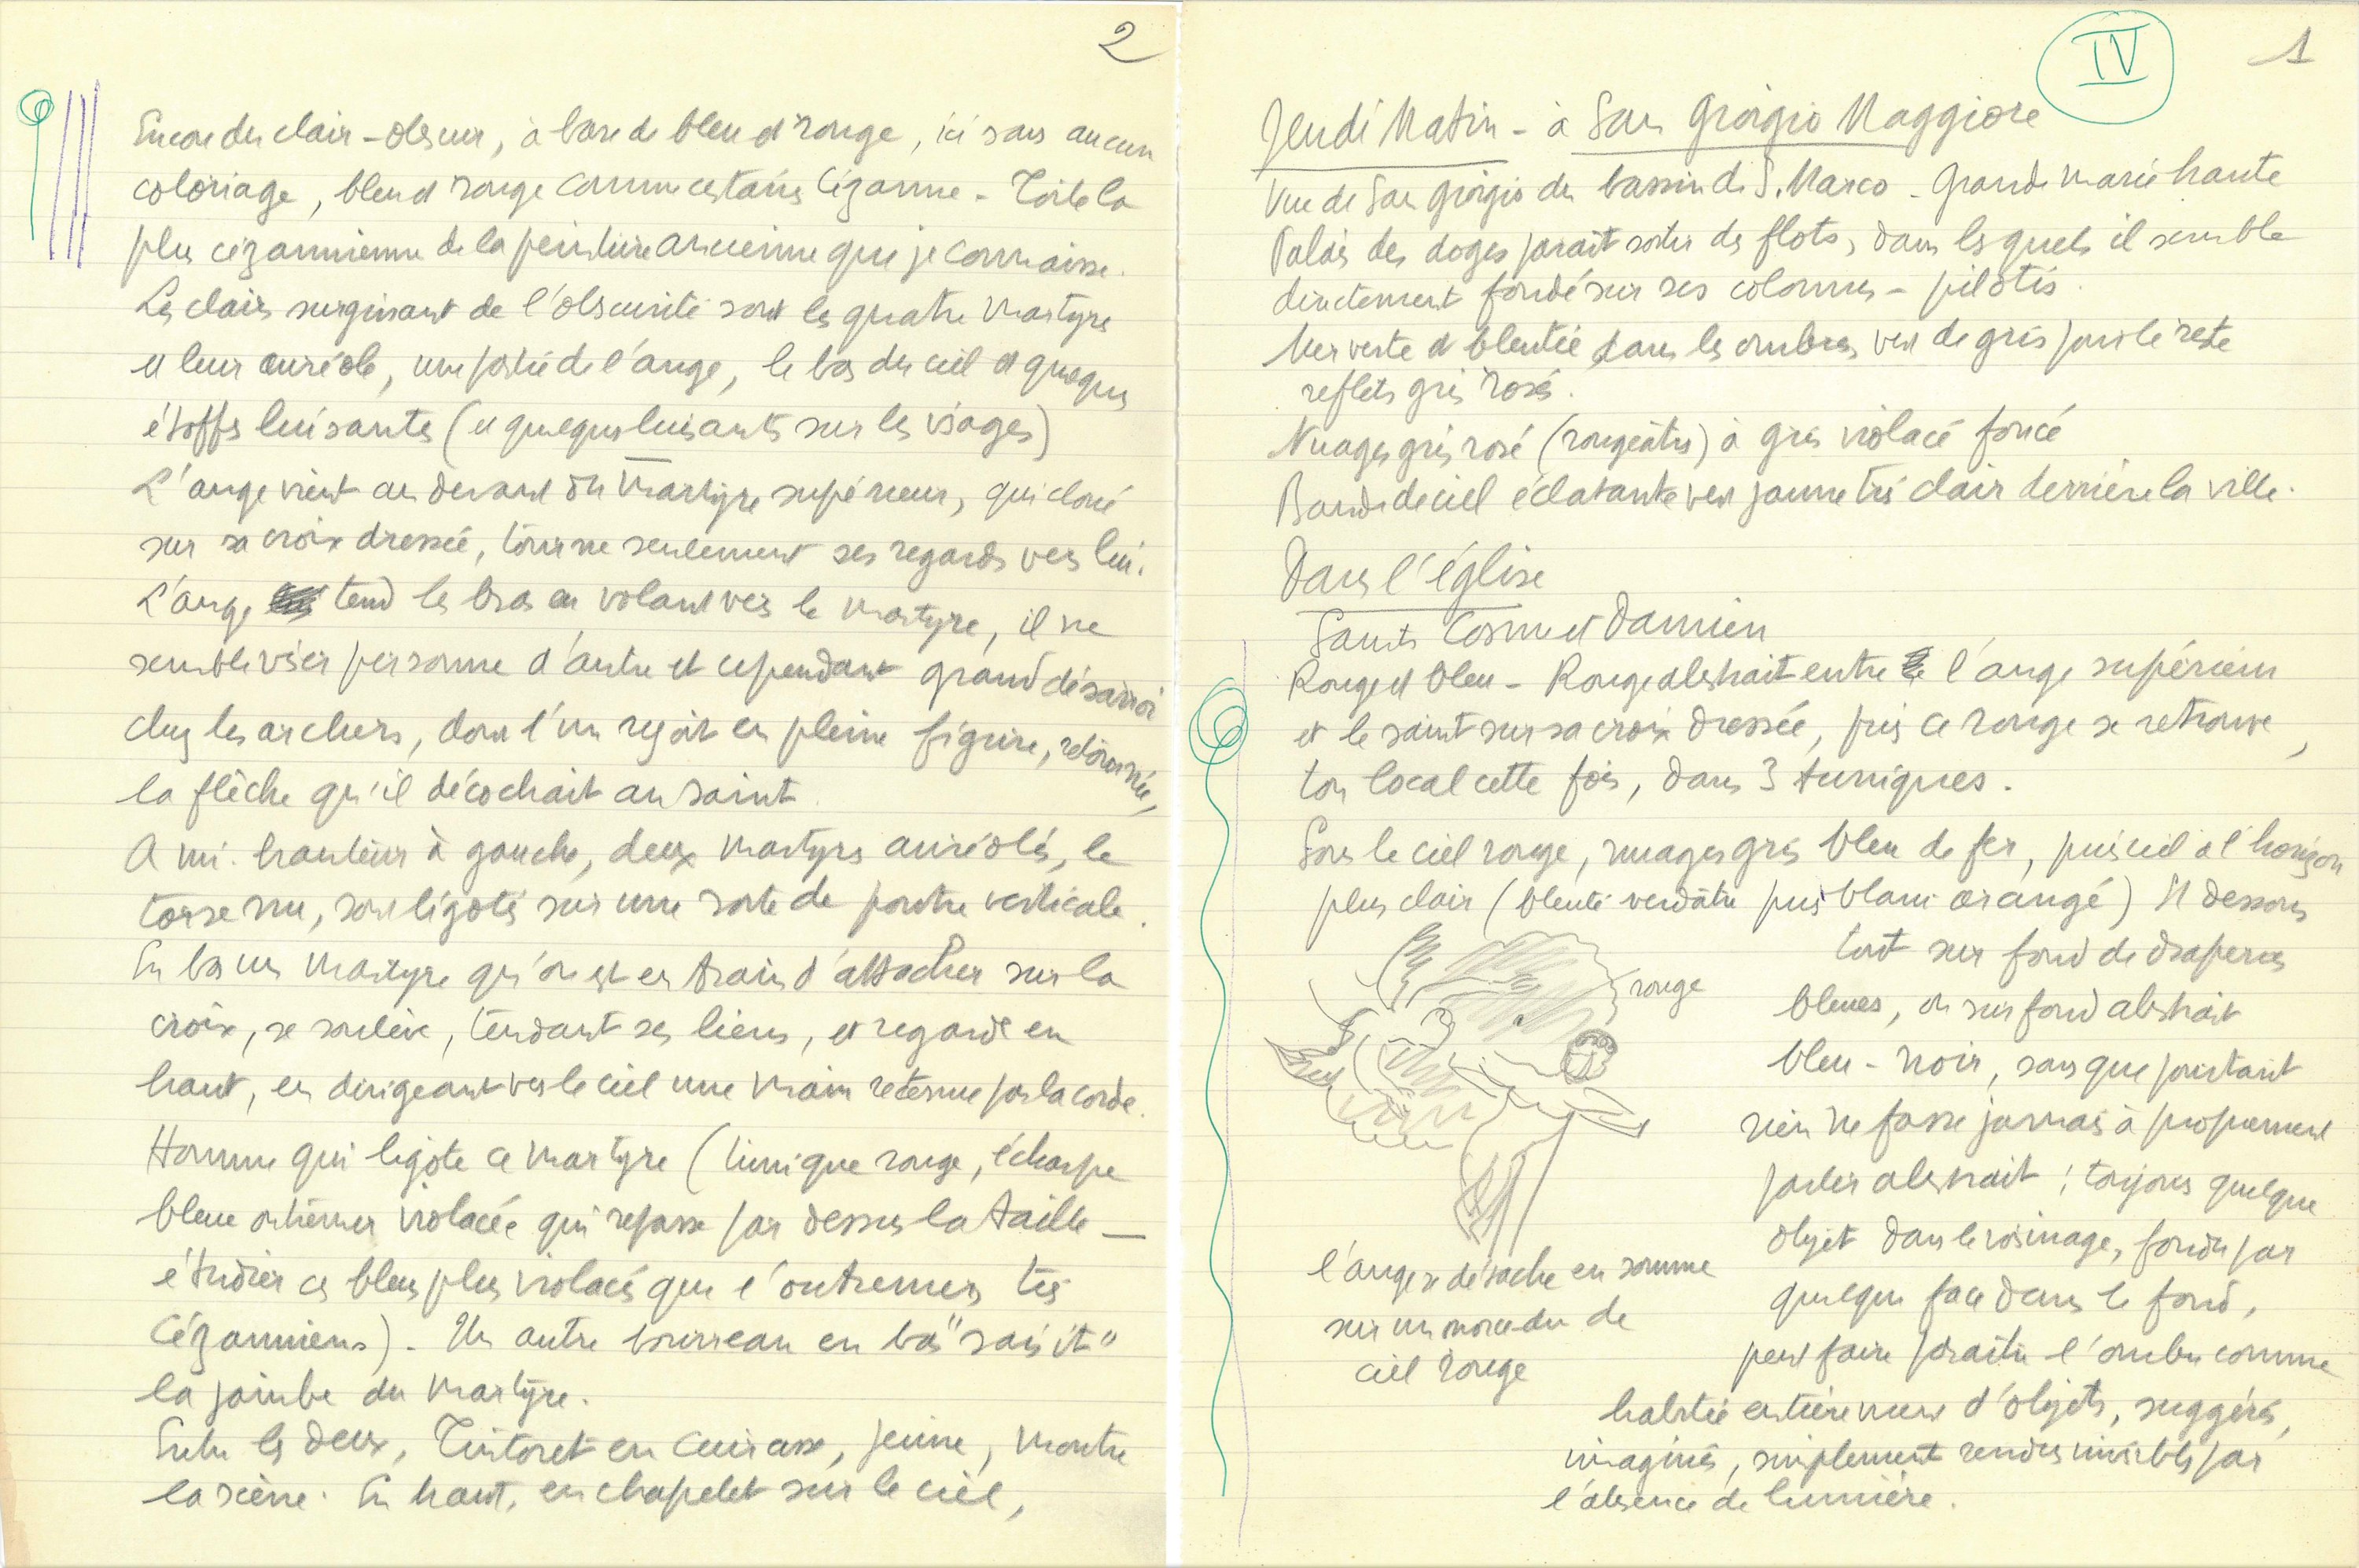 2
Encore du clair-obscur, à base de bleu et rouge, ici sans aucun
coloriage, bleu et rouge comme certains Cézanne - Toile la
plus cézannienne de la peinture ancienne que je connaisse.
Les clairs surgissant de l'obscurité sont les quatre martyrs
et leur auréole, une partie de l'ange, le bas du ciel et quelques
étoffes luisantes (et quelques luisants sur les visages)
L'ange vient au devant du martyre supérieur, qui cloué
sur sa croix dressée, tourne seulement ses regards vers lui.
L'ange tend les bras en volant vers le martyre, il ne
semble viser personne d'autre et cependant grand désarroi
chez les archers, dont l'un reçoit en pleine figure, retournée,
la flèche qu'il décochait au saint.
A mi-hauteur à gauche, deux martyrs auréolés, le
torse nu, sont ligotés sur une sorte de poutre verticale.
En bas un martyre qu'on est en train d'attacher sur la
croix, se soulève, tendant ses liens, et regarde en
haut, en dirigeant vers le ciel une main retenue par la corde.
Homme qui ligote ce martyre (tunique rouge, écharpe
bleue outremer violacée qui repasse par dessus la taille —
étudier ces bleus plus violacés que l'outremer, très
Cézanniens). Un autre bourreau en bas "saisit"
la jambe du martyre.
Entre les deux, Tintoret en cuirasse, jeune, montre
la scène. En haut, en chapelet sur le ciel,
IV
1
Jeudi Matin - à San Giorgio Maggiore
Vue de San Giorgio du bassin di S. Marco - Grande marée haute
Palais des doges paraît sortir des flots, dans lesquels il semble
directement fondé sur ses colonnes - pilotis.
Mer verte et bleutée dans les ombres, vert de gris pour le reste
reflets gris rosés.
Nuages gris rosé (rougeâtres) à gris violacé foncé
Bande de ciel éclatante vert jaune très clair derrière la ville.
Dans l'église
Saints Cosme et Damien
Rouge et bleu - Rouge abstrait entre l'ange supérieur
et le saint sur sa croix dressée, puis ce rouge se retrouve,
ton local cette fois, dans 3 tuniques.
Sous le ciel rouge, nuages gris bleu de fer, puis ciel à l'horizon
plus clair (bleuté verdâtre puis blanc orangé) Et dessous
tout sur fond de draperies
rouge
bleues, ou sur fond abstrait
bleu-noir, sans que pourtant
rien ne fasse jamais à proprement
parler abstrait ; toujours quelque
objet dans le voisinage, fondu par
quelque face dans le fond,
peut faire paraître l'ombre comme
habitée entièrement d'objets, suggérés,
imaginés, simplement rendus invisibles par
l'absence de lumière.
l'ange se détache en somme
sur un morceau de
ciel rouge